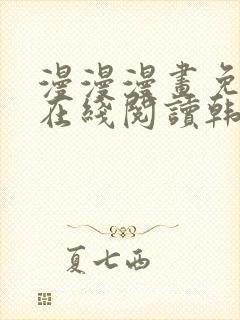 漫漫漫畫免
在綫閱讀韩
夏七西